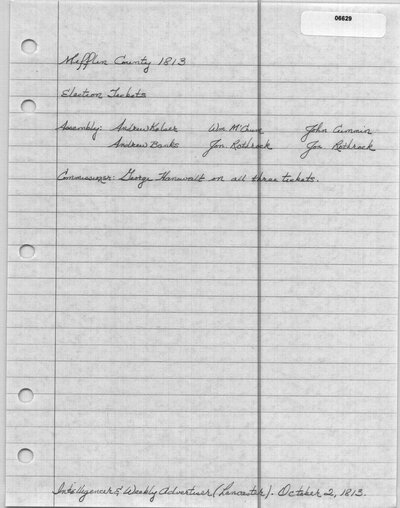 06629
Mifflin County 1813
Election Tickets
Assembly: Andrew Keiser Wm. M'Clure John Cummin
Andrew Banks Jon. Rothrock Jon. Rothrock
Commissioner: George Hanawalt on all three tickets.
Intelligencer & Weekly Advertiser (Lancaster). October 2, 1813.